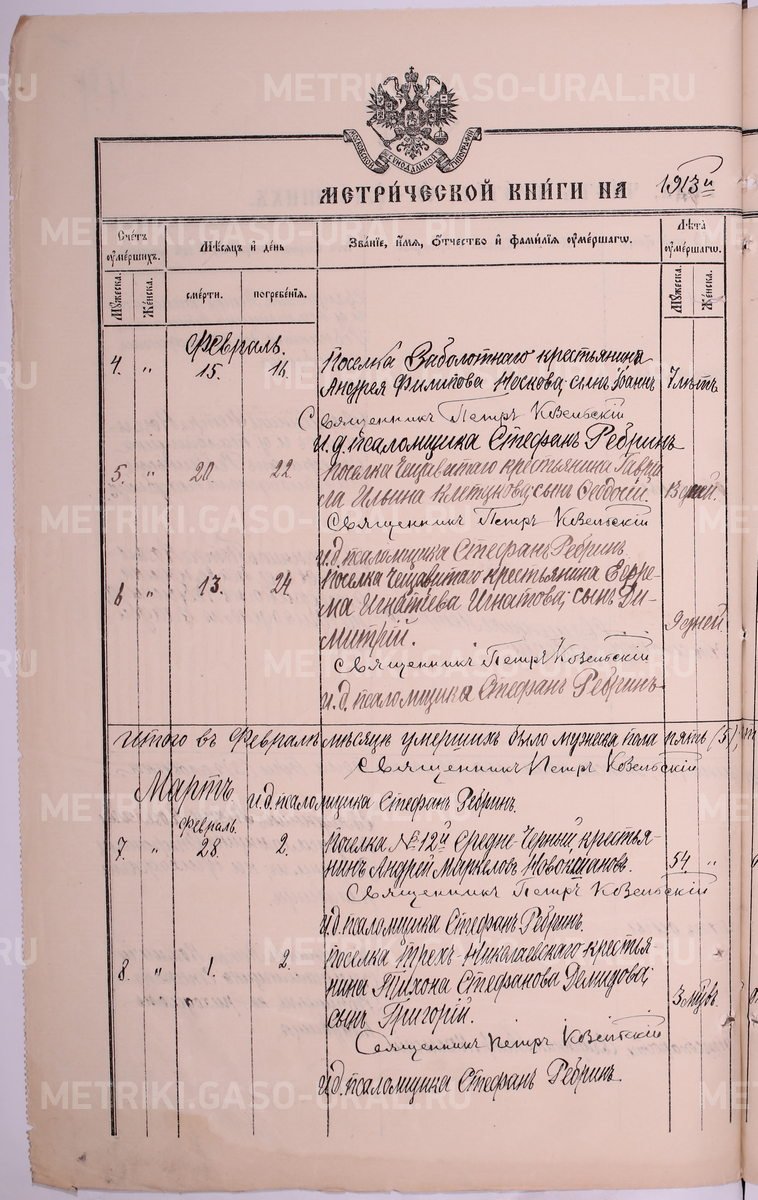 МЕТРИ́ЧЕСКОЙ КНИ́ГИ НА 1913й
Счетъ оумершихъ.
Мѣсяцъ и день
Зва́нїе, и́мя, о́тчество и фами́лїя оуме́ршагѡ.
Лѣта оуме́ршагѡ.
Мꙋжеска.
Же́нска.
сме́рти.
погребе́нїя.
Мꙋжеска.
Же́нска.
Февраль.
4. " 15. 16. Поселка Заболотнаго крестьянина
Андрея Филипова Носкова, сынъ Іоаннъ 7 лѣтъ
Священникъ Петръ Козельскій
и.д. псаломщика Стефанъ Ребринъ
5. " 20. 22. Поселка крестьянина Гаврі
ила Ильина сынъ Ѳеодосій. дней.
Священникъ Петръ Козельскій
и.д. псаломщика Стефанъ Ребринъ
6 " 13. 24 Поселка крестьянина Ефре-
ма Игнатіева Игнатова, сынъ Ди-
митрій. 9 дней.
Священникъ Петръ Козельскій
и.д. псаломщика Стефанъ Ребринъ
Итого въ Февралѣ мѣсяцѣ умершихъ было мужеска пола пять (5),
Священникъ Петръ Козельскій
Мартъ. и.д. псаломщика Стефанъ Ребринъ.
Февраль.
7. " 28. 2. Поселка №12й Средне-Черный крестья-
нинъ Андрей Маркеловъ 54. "
Священникъ Петръ Козельскій
и.д. псаломщика Стефанъ Ребринъ.
8. " 1. 2. Поселка Трехъ-Николаевскаго крестья
нина Тихона Стефанова Демидова,
сынъ Григорій. 3 мѣс.
Священникъ Петръ Козельскій
и.д. псаломщика Стефанъ Ребринъ.
METRIKI.GASO-URAL.RU